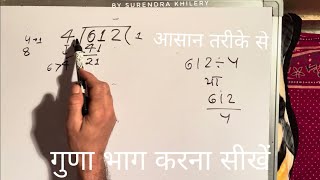 BY SURENDRA KHILERY
आसान तरीके से
4+1
4 ) 612 ( 1
8
41
21
67
612 ÷ 4
या
612
4
गुणा भाग करना सीखें